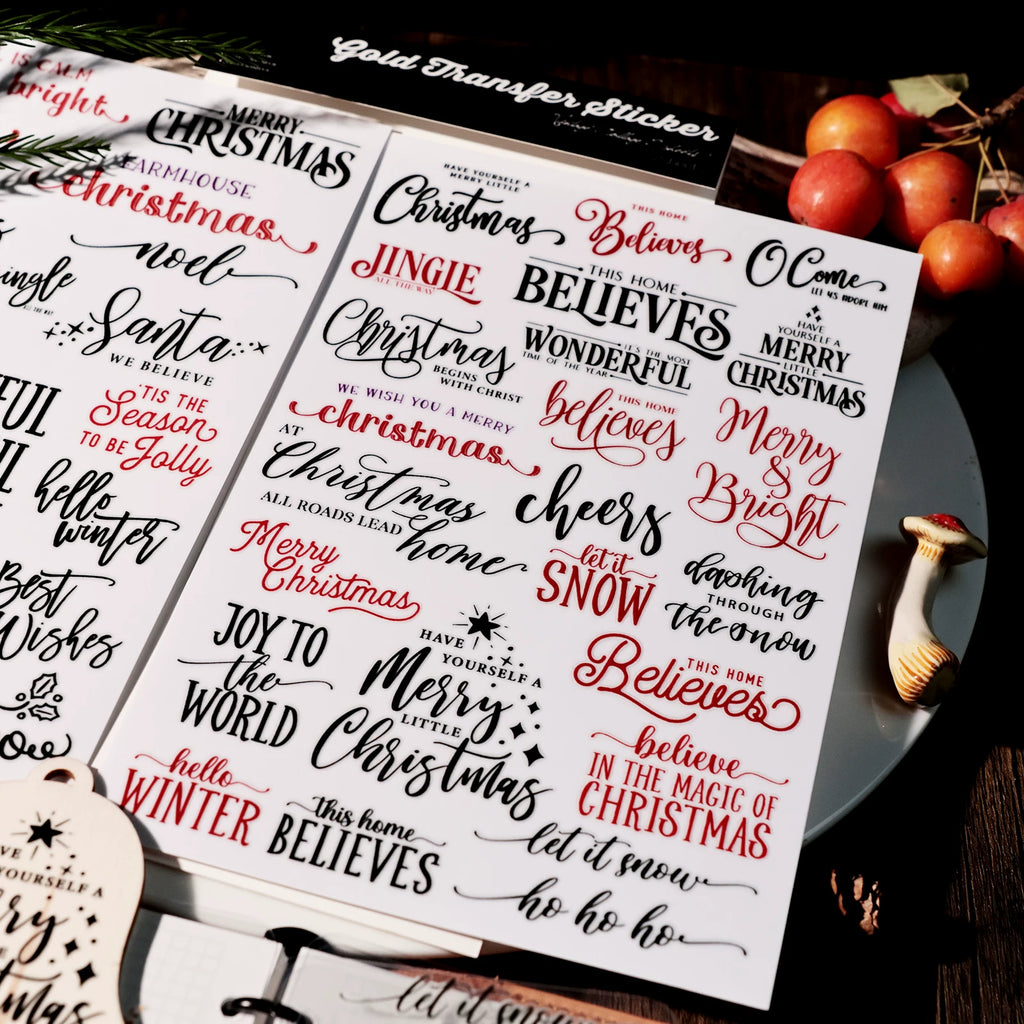 Gold Transfer Sticker
IS CALM
bright
MERRY
CHRISTMAS
FARMHOUSE
christmas
noel
jingle
ALL THE WAY
Santa
WE BELIEVE
'TIS THE
Season
TO BE Jolly
hello
winter
Best
Wishes
HAVE YOURSELF A
MERRY LITTLE
Christmas
THIS HOME
Believes
O Come
LET US ADORE HIM
JINGLE
ALL THE WAY
THIS HOME
BELIEVES
HAVE
YOURSELF A
MERRY
LITTLE
CHRISTMAS
Christmas
BEGINS
WITH CHRIST
IT'S THE MOST
WONDERFUL
TIME OF THE YEAR
WE WISH YOU A MERRY
christmas
THIS HOME
believes
Merry
&
Bright
AT
Christmas
ALL ROADS LEAD
home
cheers
Merry
Christmas
let it
SNOW
dashing
THROUGH
the snow
JOY TO
the
WORLD
HAVE
YOURSELF A
Merry
LITTLE
Christmas
THIS HOME
Believes
believe
IN THE MAGIC OF
CHRISTMAS
hello
WINTER
this home
BELIEVES
let it snow
ho ho ho
YOURSELF A
let it snow